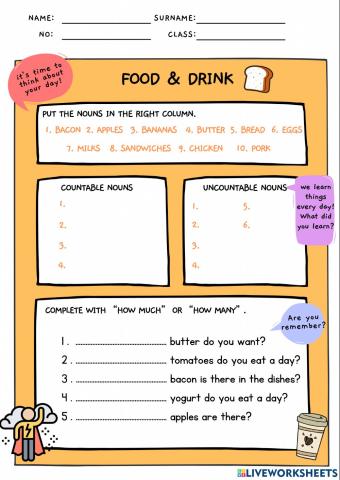 NAME: SURNAME:
NO: CLASS:
it's time to
think about
your day!
FOOD & DRINK
PUT THE NOUNS IN THE RIGHT COLUMN.
1. BACON 2. APPLES 3. BANANAS 4. BUTTER 5. BREAD 6. EGGS
7. MILKS 8. SANDWICHES 9. CHICKEN 10. PORK
COUNTABLE NOUNS
1.
2.
3.
4.
UNCOUNTABLE NOUNS
1. 5.
2. 6.
3.
4.
we learn
things
every day!
What did
you learn?
COMPLETE WITH “HOW MUCH” OR “HOW MANY”.
Are you
remember?
1. ........................................ butter do you want?
2. ........................................ tomatoes do you eat a day?
3. ........................................ bacon is there in the dishes?
4. ........................................ yogurt do you eat a day?
5. ........................................ apples are there?
LIVEWORKSHEETS